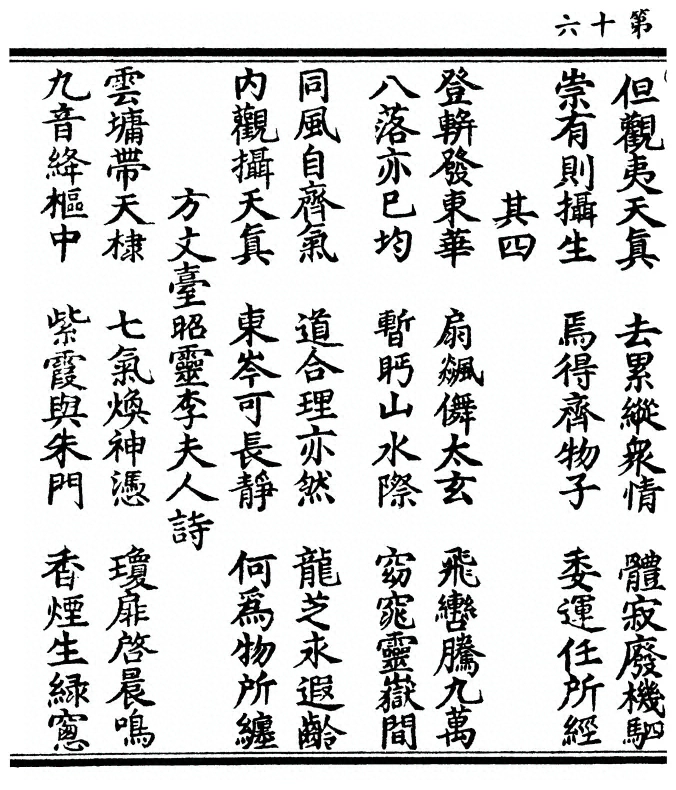 第十六
但觀夷天真　去累縱衆情　體寂廢機駟
崇有則攝生　焉得齊物子　委運任所經
其四
登軿發東華　扇飈儛太玄　飛轡騰九萬
八落亦已均　暫眄山水際　窈窕靈嶽間
同風自齊氣　道合理亦然　龍芝永遐齡
内觀攝天真　東岑可長靜　何爲物所纏
方丈臺昭靈李夫人詩
雲墉帶天棣　七氣煥神憑　瓊扉啓晨鳴
九音絳樞中　紫霞與朱門　香煙生緑窻